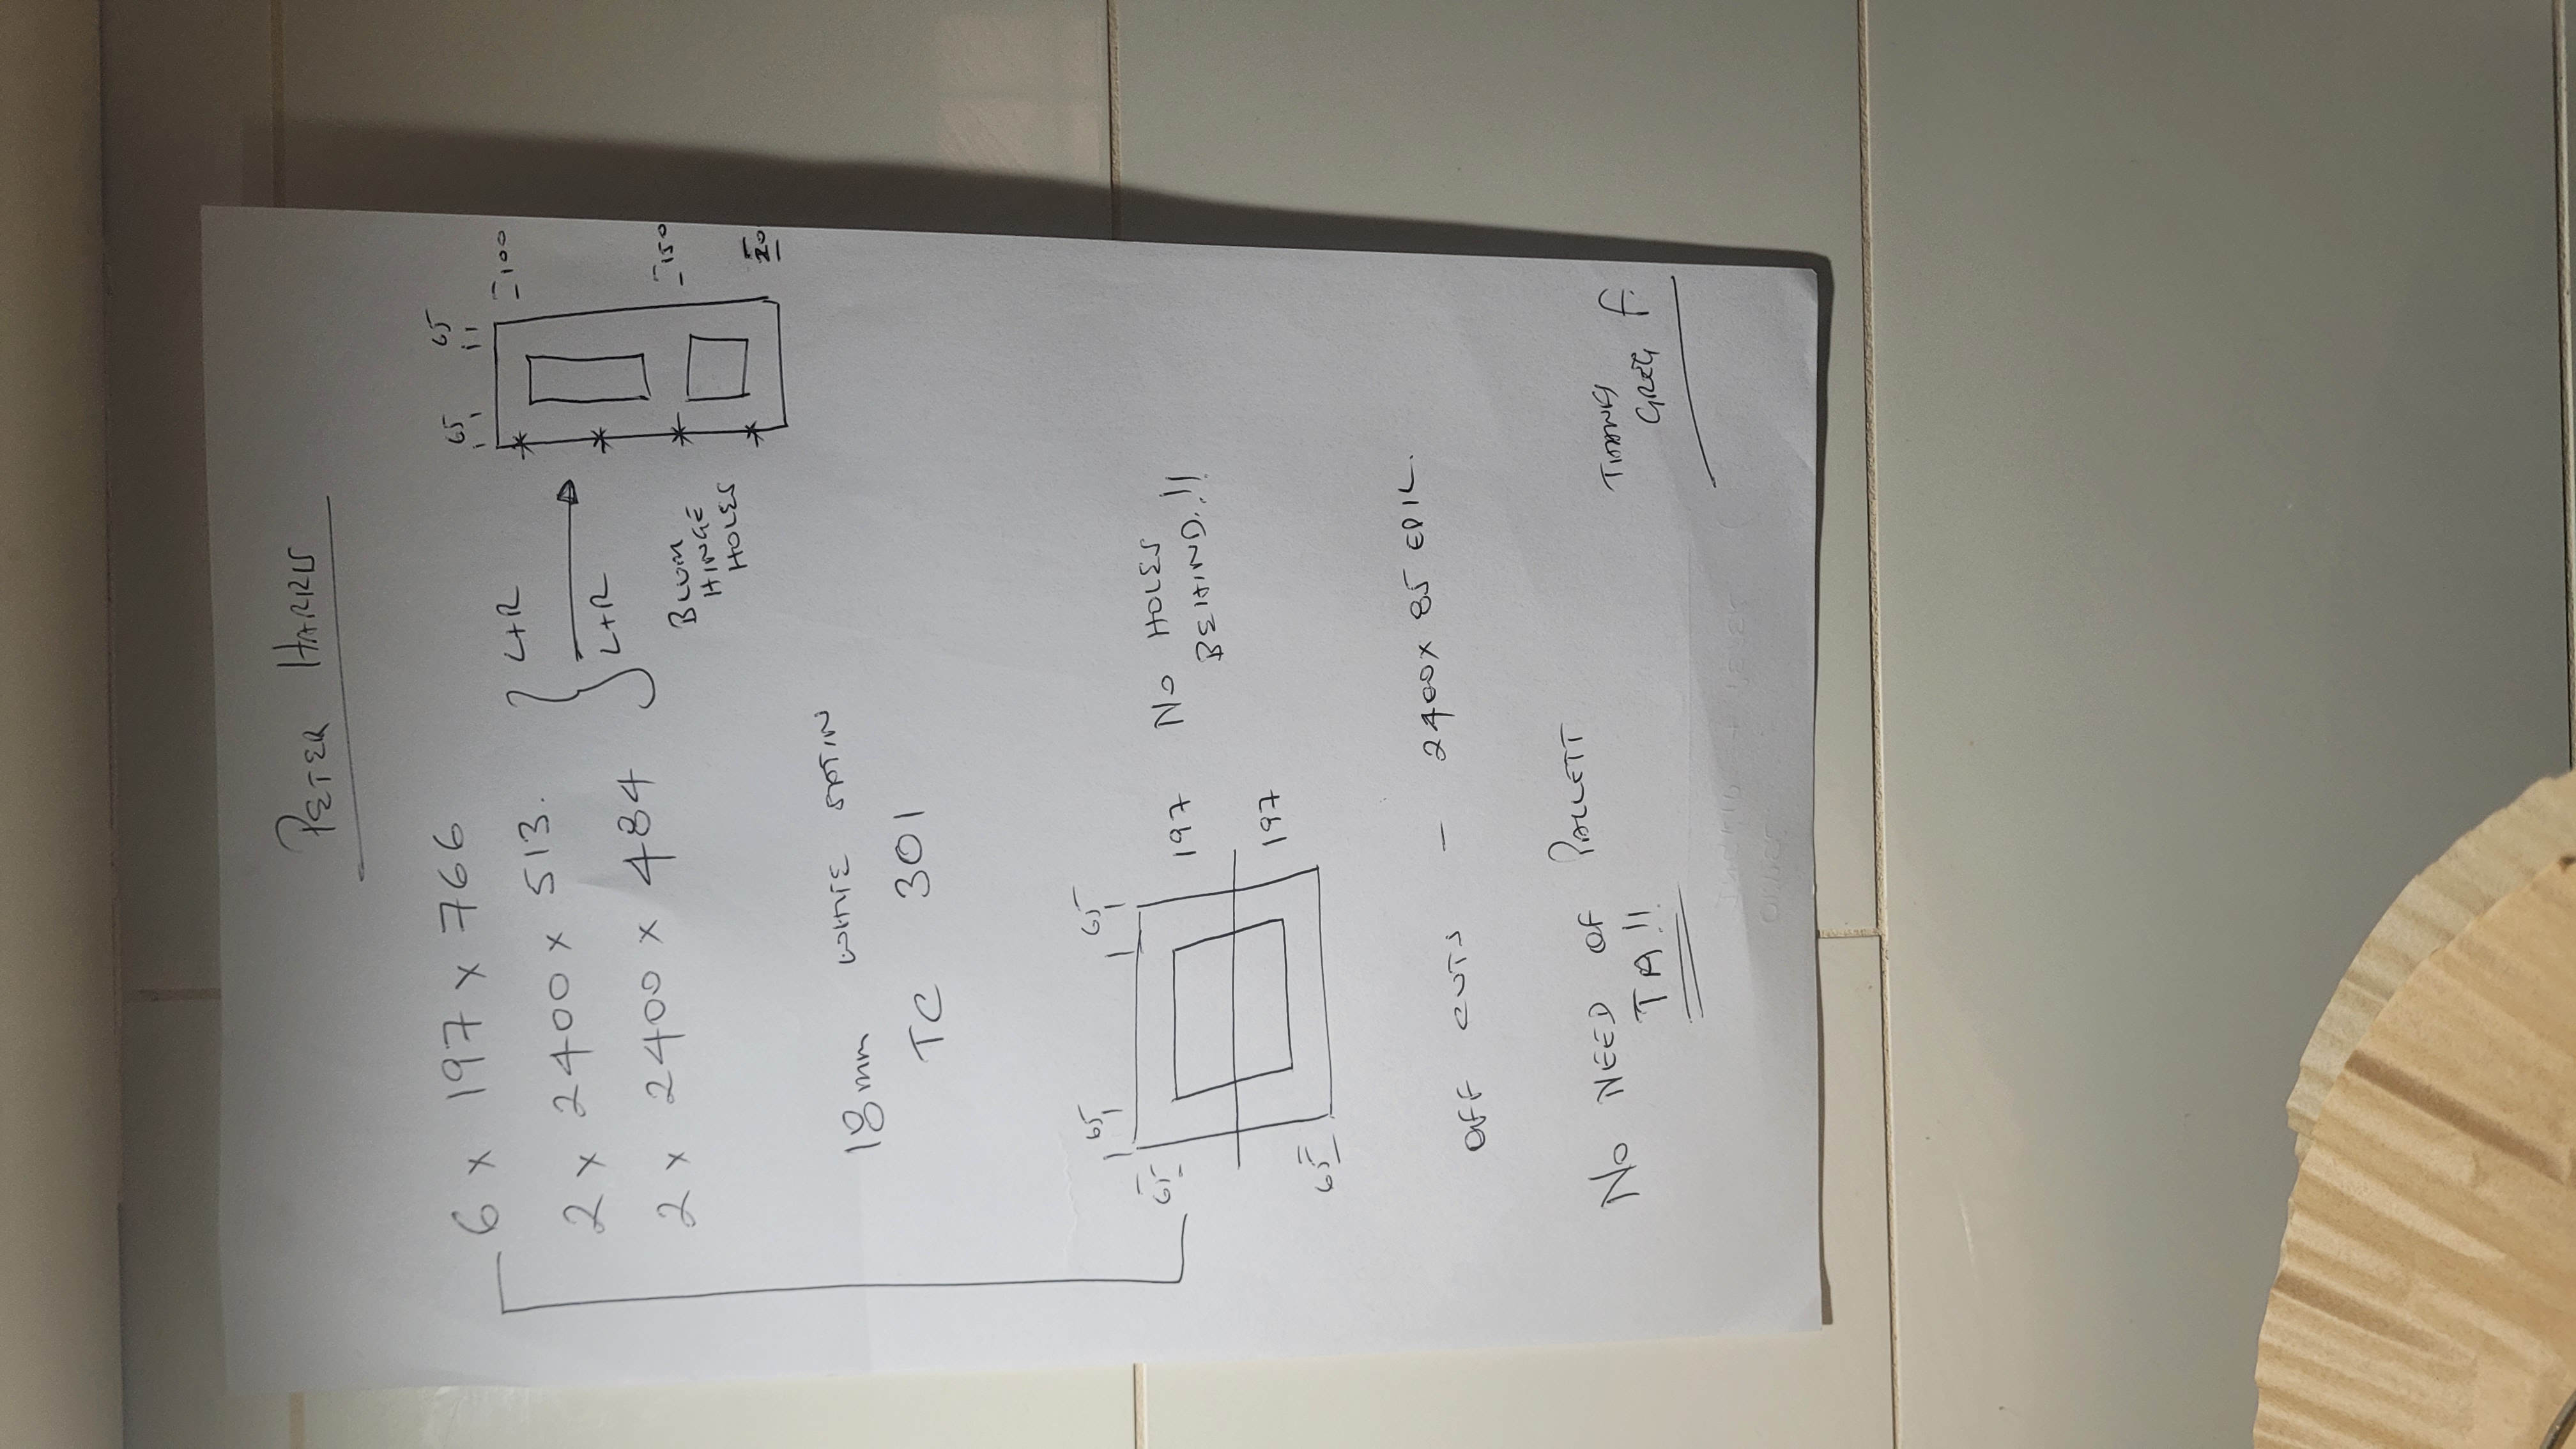 PETER HARRIS
6 x 197 x 766
2 x 2400 x 513. } L+R
2 x 2400 x 484 } L+R
BLUM
HINGE
HOLES
65 65
100
150
18mm WHITE SATIN
TC 301
65 65
65 197 NO HOLES
BEHIND.!!
65 197
OFF CUTS - 2400 x 85 EPIL.
NO NEED OF PALLETT
TA!!
GREG F.